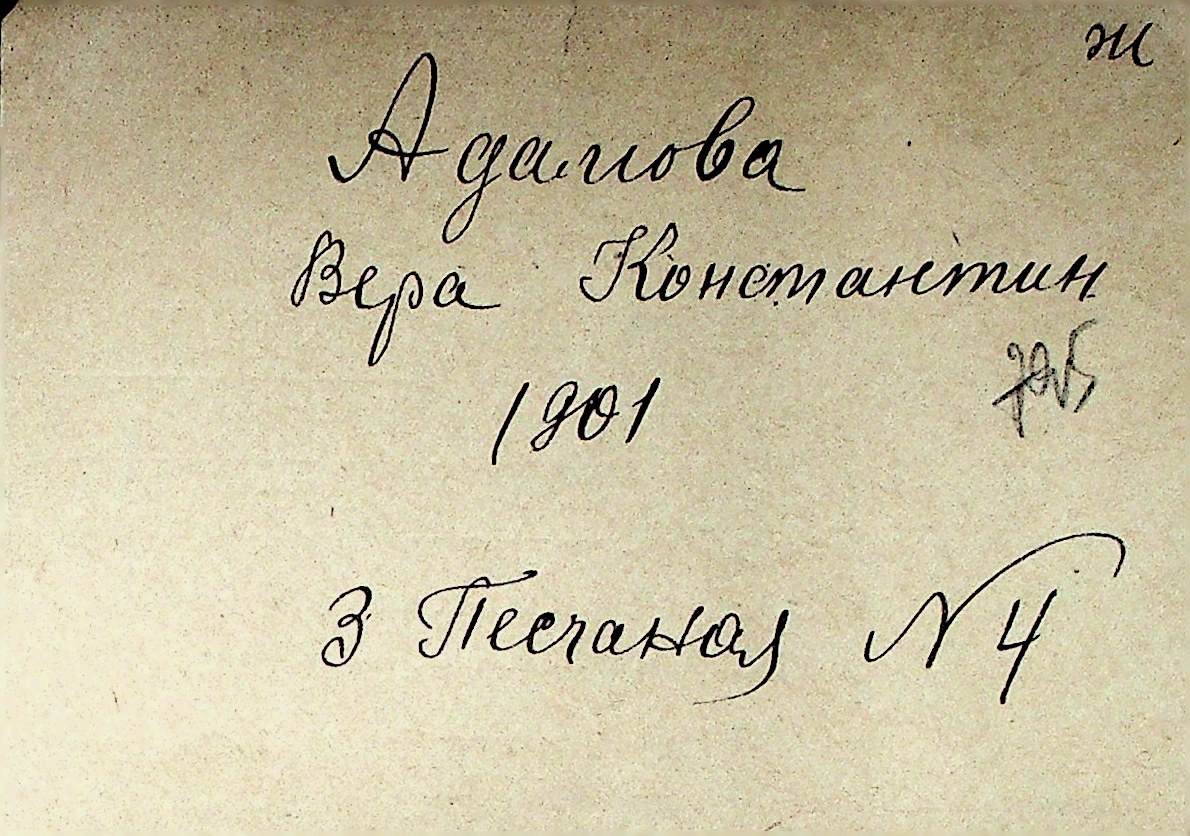 ж
Адамова
Вера Константин
1901
3 Песчаная N 4